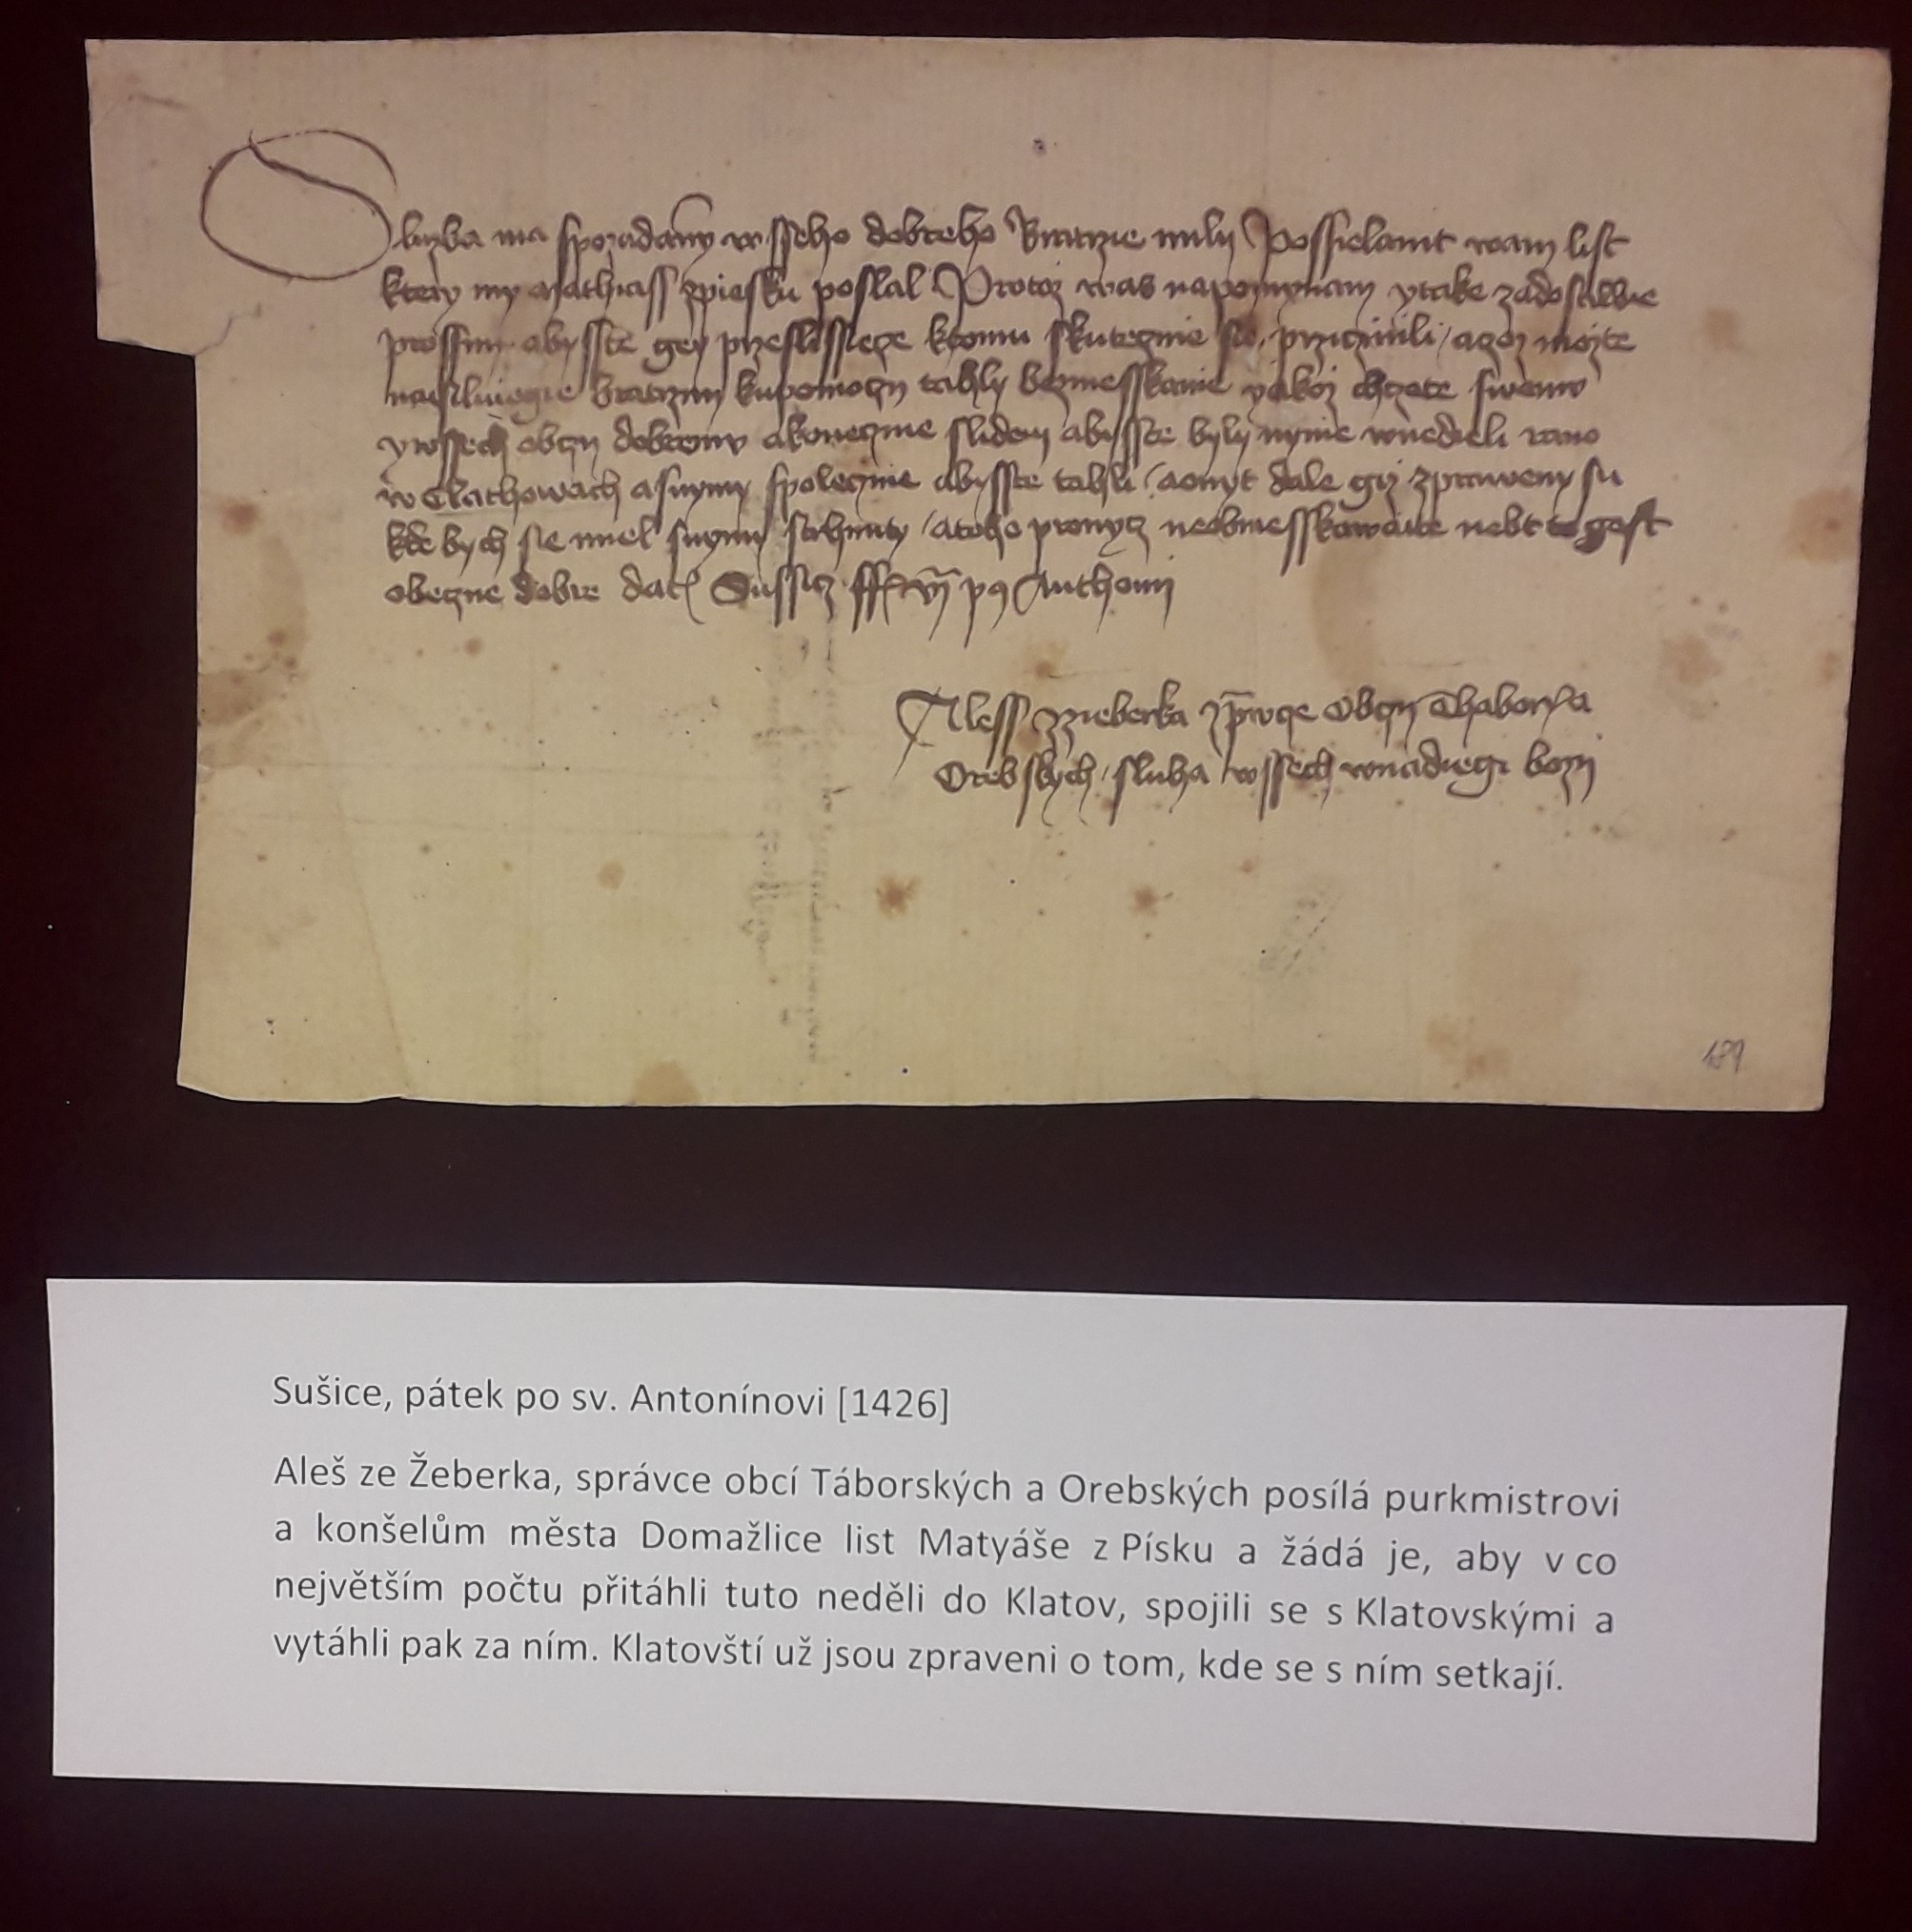 Sluzba ma spozadany wsseho dobreho Bratrzie mily Possielamt wam list
ktery my Mathiass zpiesku poslal Protoz was napomynam ytake zadostiwie
prossym abysste gey przeslissiece ktomu skutecznie su przicinili / agoz mozte
naysilniegie bratrzim kupomoczy tahly bezmesskanie yakoz chczete swemu
ywssech obczy dobremu akonecznie slidem abysste byly nynie wnedieli rano
w Clathowach asnymy spolecznie abysste tahli / aonyt dale giz zpraweny su
kde bych sie miel snymy sthnuty / atoho pronycz neobmesskawaite nebt to gest
obeczne dobre dat Sussicz Anthonii
Aless zzieberka zprwce Obczy Thabors a
Orebskych / sluha wssech wnadiegi bozy
189
Sušice, pátek po sv. Antonínovi [1426]
Aleš ze Žeberka, správce obcí Táborských a Orebských posílá purkmistrovi
a konšelům města Domažlice list Matyáše z Písku a žádá je, aby v co
největším počtu přitáhli tuto neděli do Klatov, spojili se s Klatovskými a
vytáhli pak za ním. Klatovští už jsou zpraveni o tom, kde se s ním setkají.